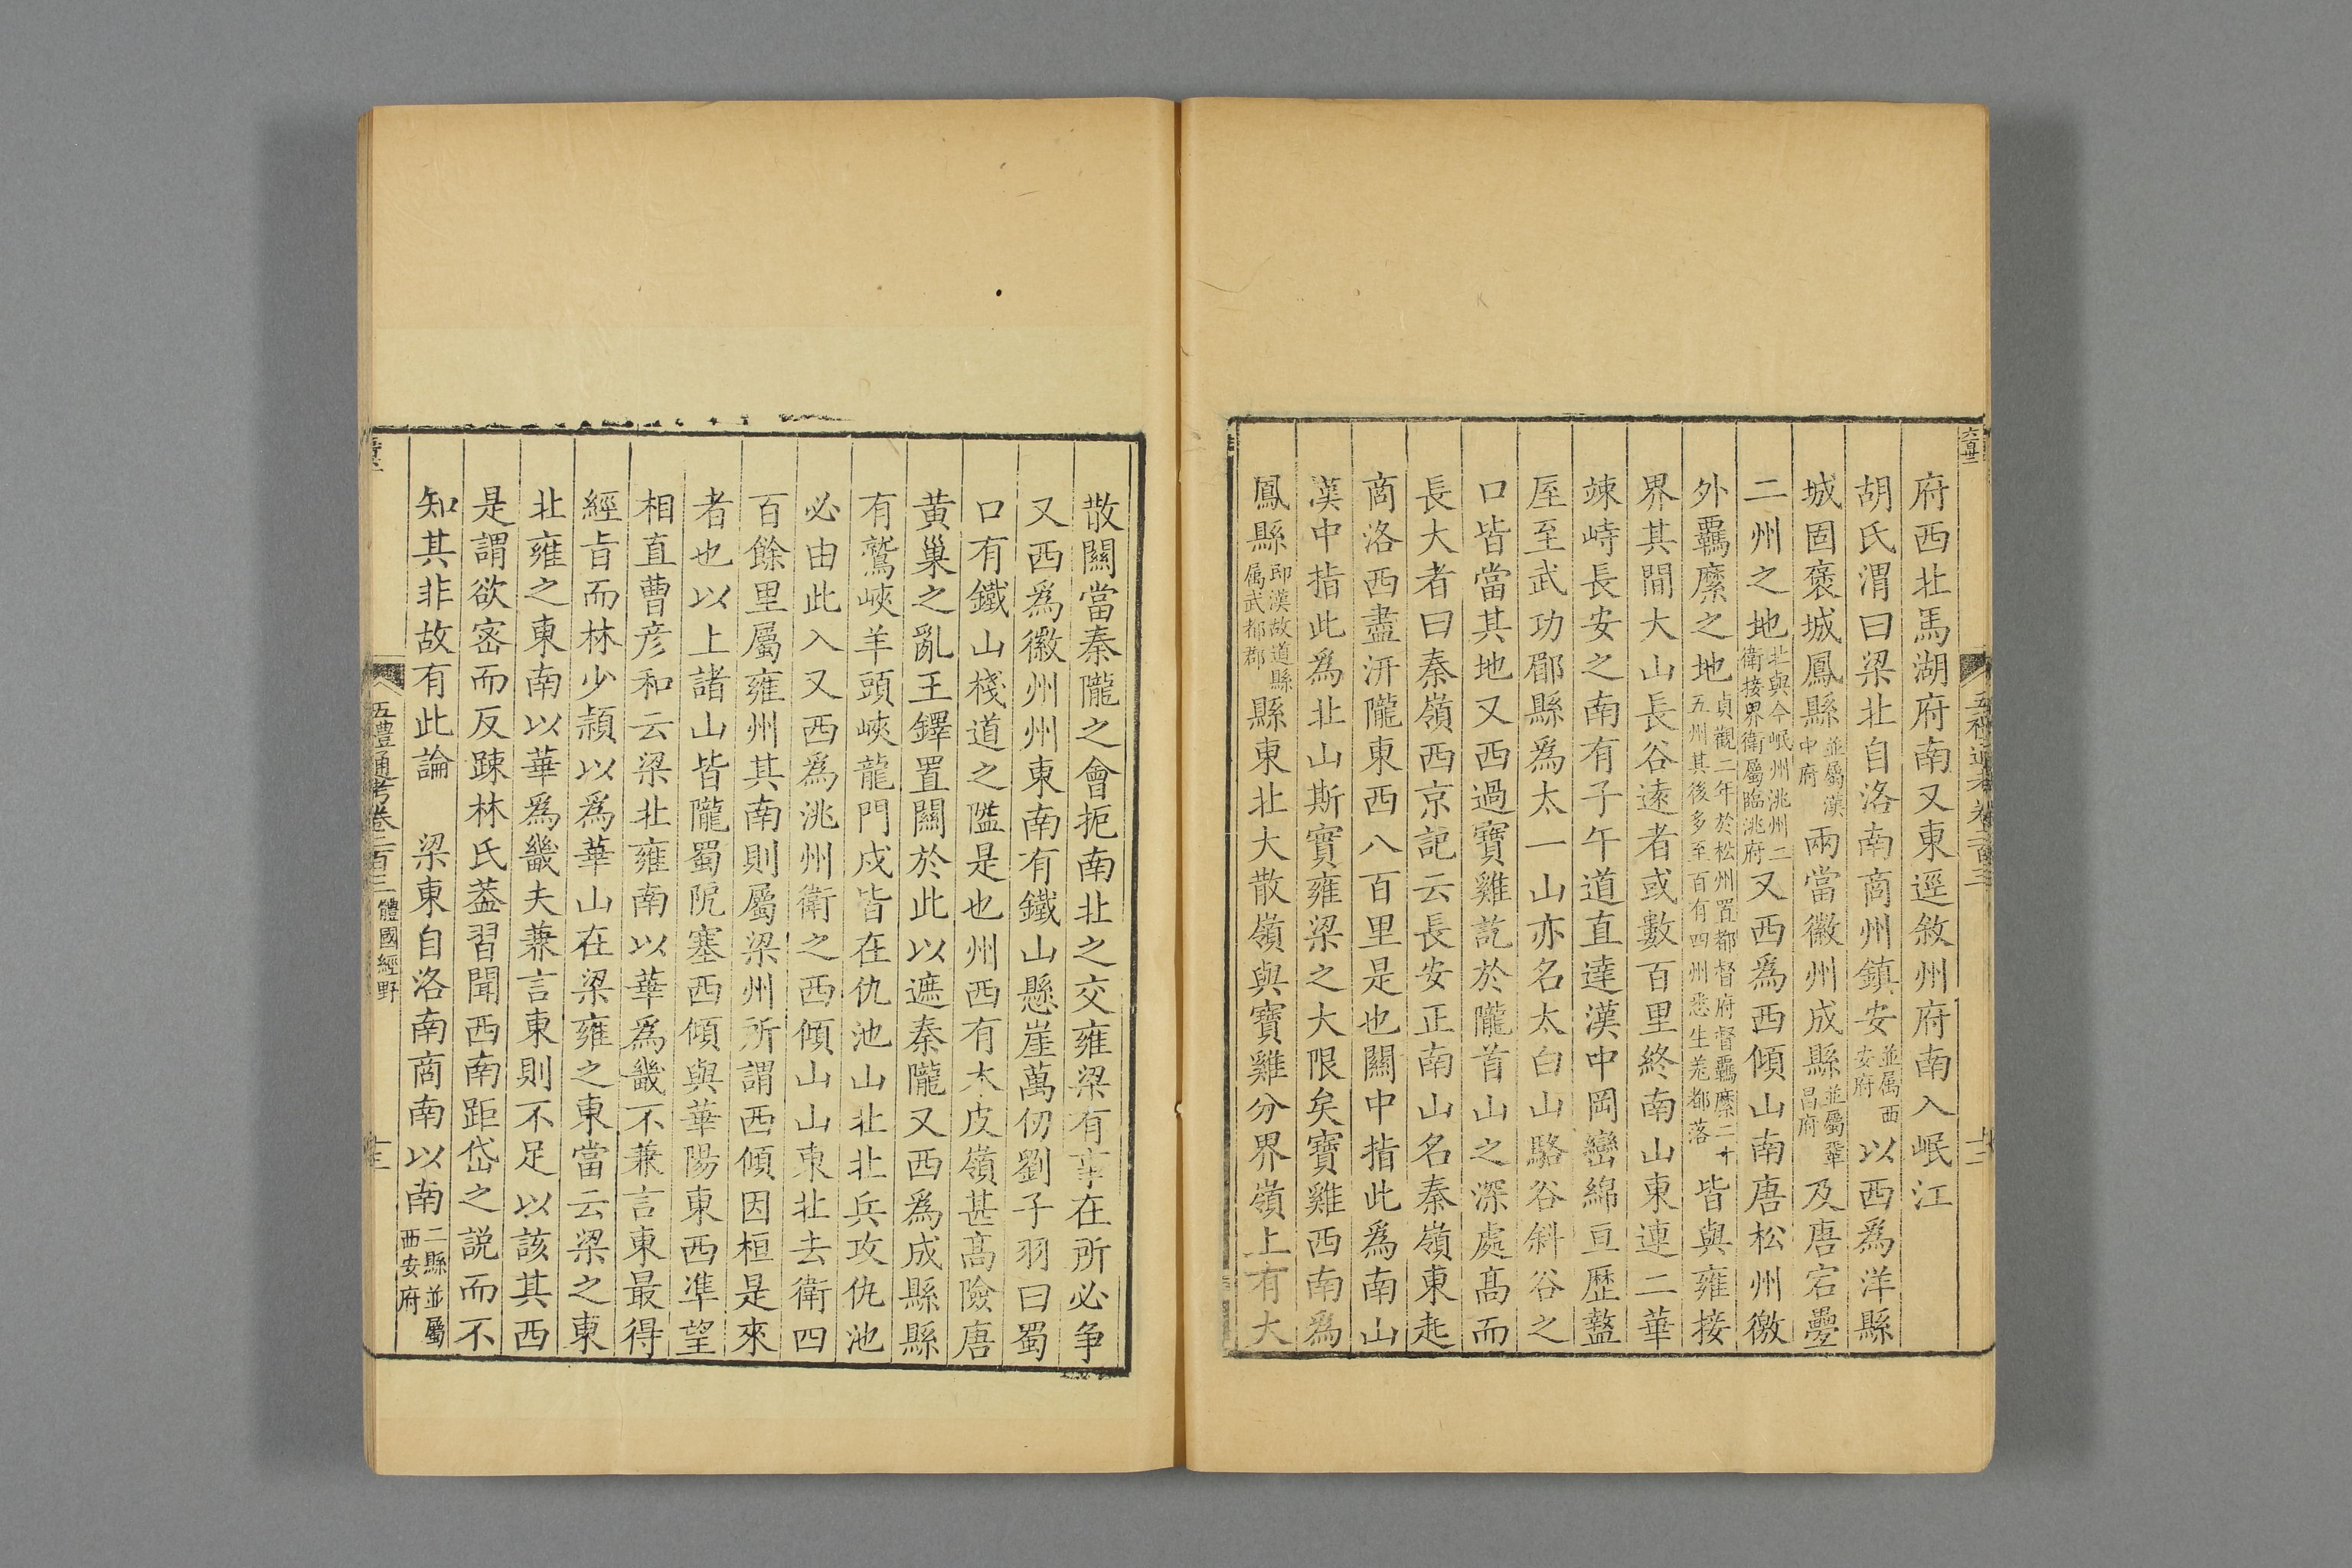 府西北馬湖府南又東逕敘州府南入岷江
胡氏渭曰梁北自洛南商州鎮安並属西安府以西爲洋縣
城固褒城鳳縣並屬漢中府兩當徽州成縣並屬鞏昌府及唐宕疊
二州之地北與今岷州洮州二衛接界衛屬臨洮府又西爲西傾山南唐松州徼
外羈縻之地貞觀二年於松州置都督府督羈縻二十五州其後多至百有四州悉生羌部落皆與雍接
界其間大山長谷遠者或數百里終南山東連二華
竦峙長安之南有子午道直達漢中岡巒綿亘歷盩
厔至武功郿縣爲太一山亦名太白山駱谷斜谷之
口皆當其地又西過寶雞訖於隴首山之深處高而
長大者曰秦嶺西京記云長安正南山名秦嶺東起
商洛西盡汧隴東西八百里是也關中指此爲南山
漢中指此爲北山斯實雍梁之大限矣寶雞西南爲
鳳縣即漢故道縣属武都郡縣東北大散嶺與寶雞分界嶺上有大
散關當秦隴之會扼南北之交雍梁有事在所必争
又西爲徽州州東南有鐵山懸崖萬仞劉子羽曰蜀
口有鐵山棧道之隘是也州西有木皮嶺甚高險唐
黃巢之亂王鐸置關於此以遮秦隴又西爲成縣縣
有鷲峽羊頭峽龍門戍皆在仇池山北北兵攻仇池
必由此入又西爲洮州衛之西傾山山東北去衛四
百餘里屬雍州其南則屬梁州所謂西傾因桓是來
者也以上諸山皆隴蜀阨塞西傾與華陽東西準望
相直曹彦和云梁北雍南以華爲畿不兼言東最得
經旨而林少頴以爲華山在梁雍之東當云梁之東
北雍之東南以華爲畿夫兼言東則不足以該其西
是謂欲密而反踈林氏葢習聞西南距岱之説而不
知其非故有此論　梁東自洛南商南以南二縣並屬西安府
五禮通考卷二百三　體國經野
十三